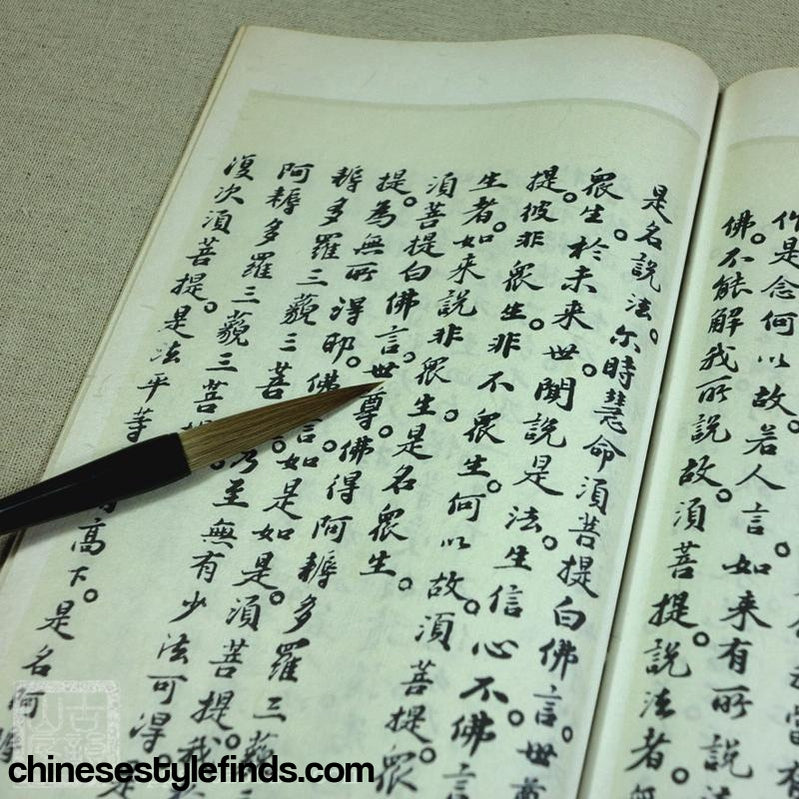 作是念何以故。若人言。如来有所說
佛。不能解我所說故。須菩提。說法者。
是名說法。尔時慧命須菩提白佛言。世尊
衆生。於未来世。聞說是法。生信心不。佛言
提。彼非衆生。非不衆生。何以故。須菩提。衆
生者。如来說非衆生。是名衆生。
須菩提白佛言。世尊。佛得阿耨多羅三藐三
提。為無所得耶。佛言。如是如是。須菩提。我
耨多羅三藐三菩。乃至無有少法可得。是
阿耨多羅三藐三菩提
復次須菩提。是法平等高下。是名阿
chinesestylefinds.com